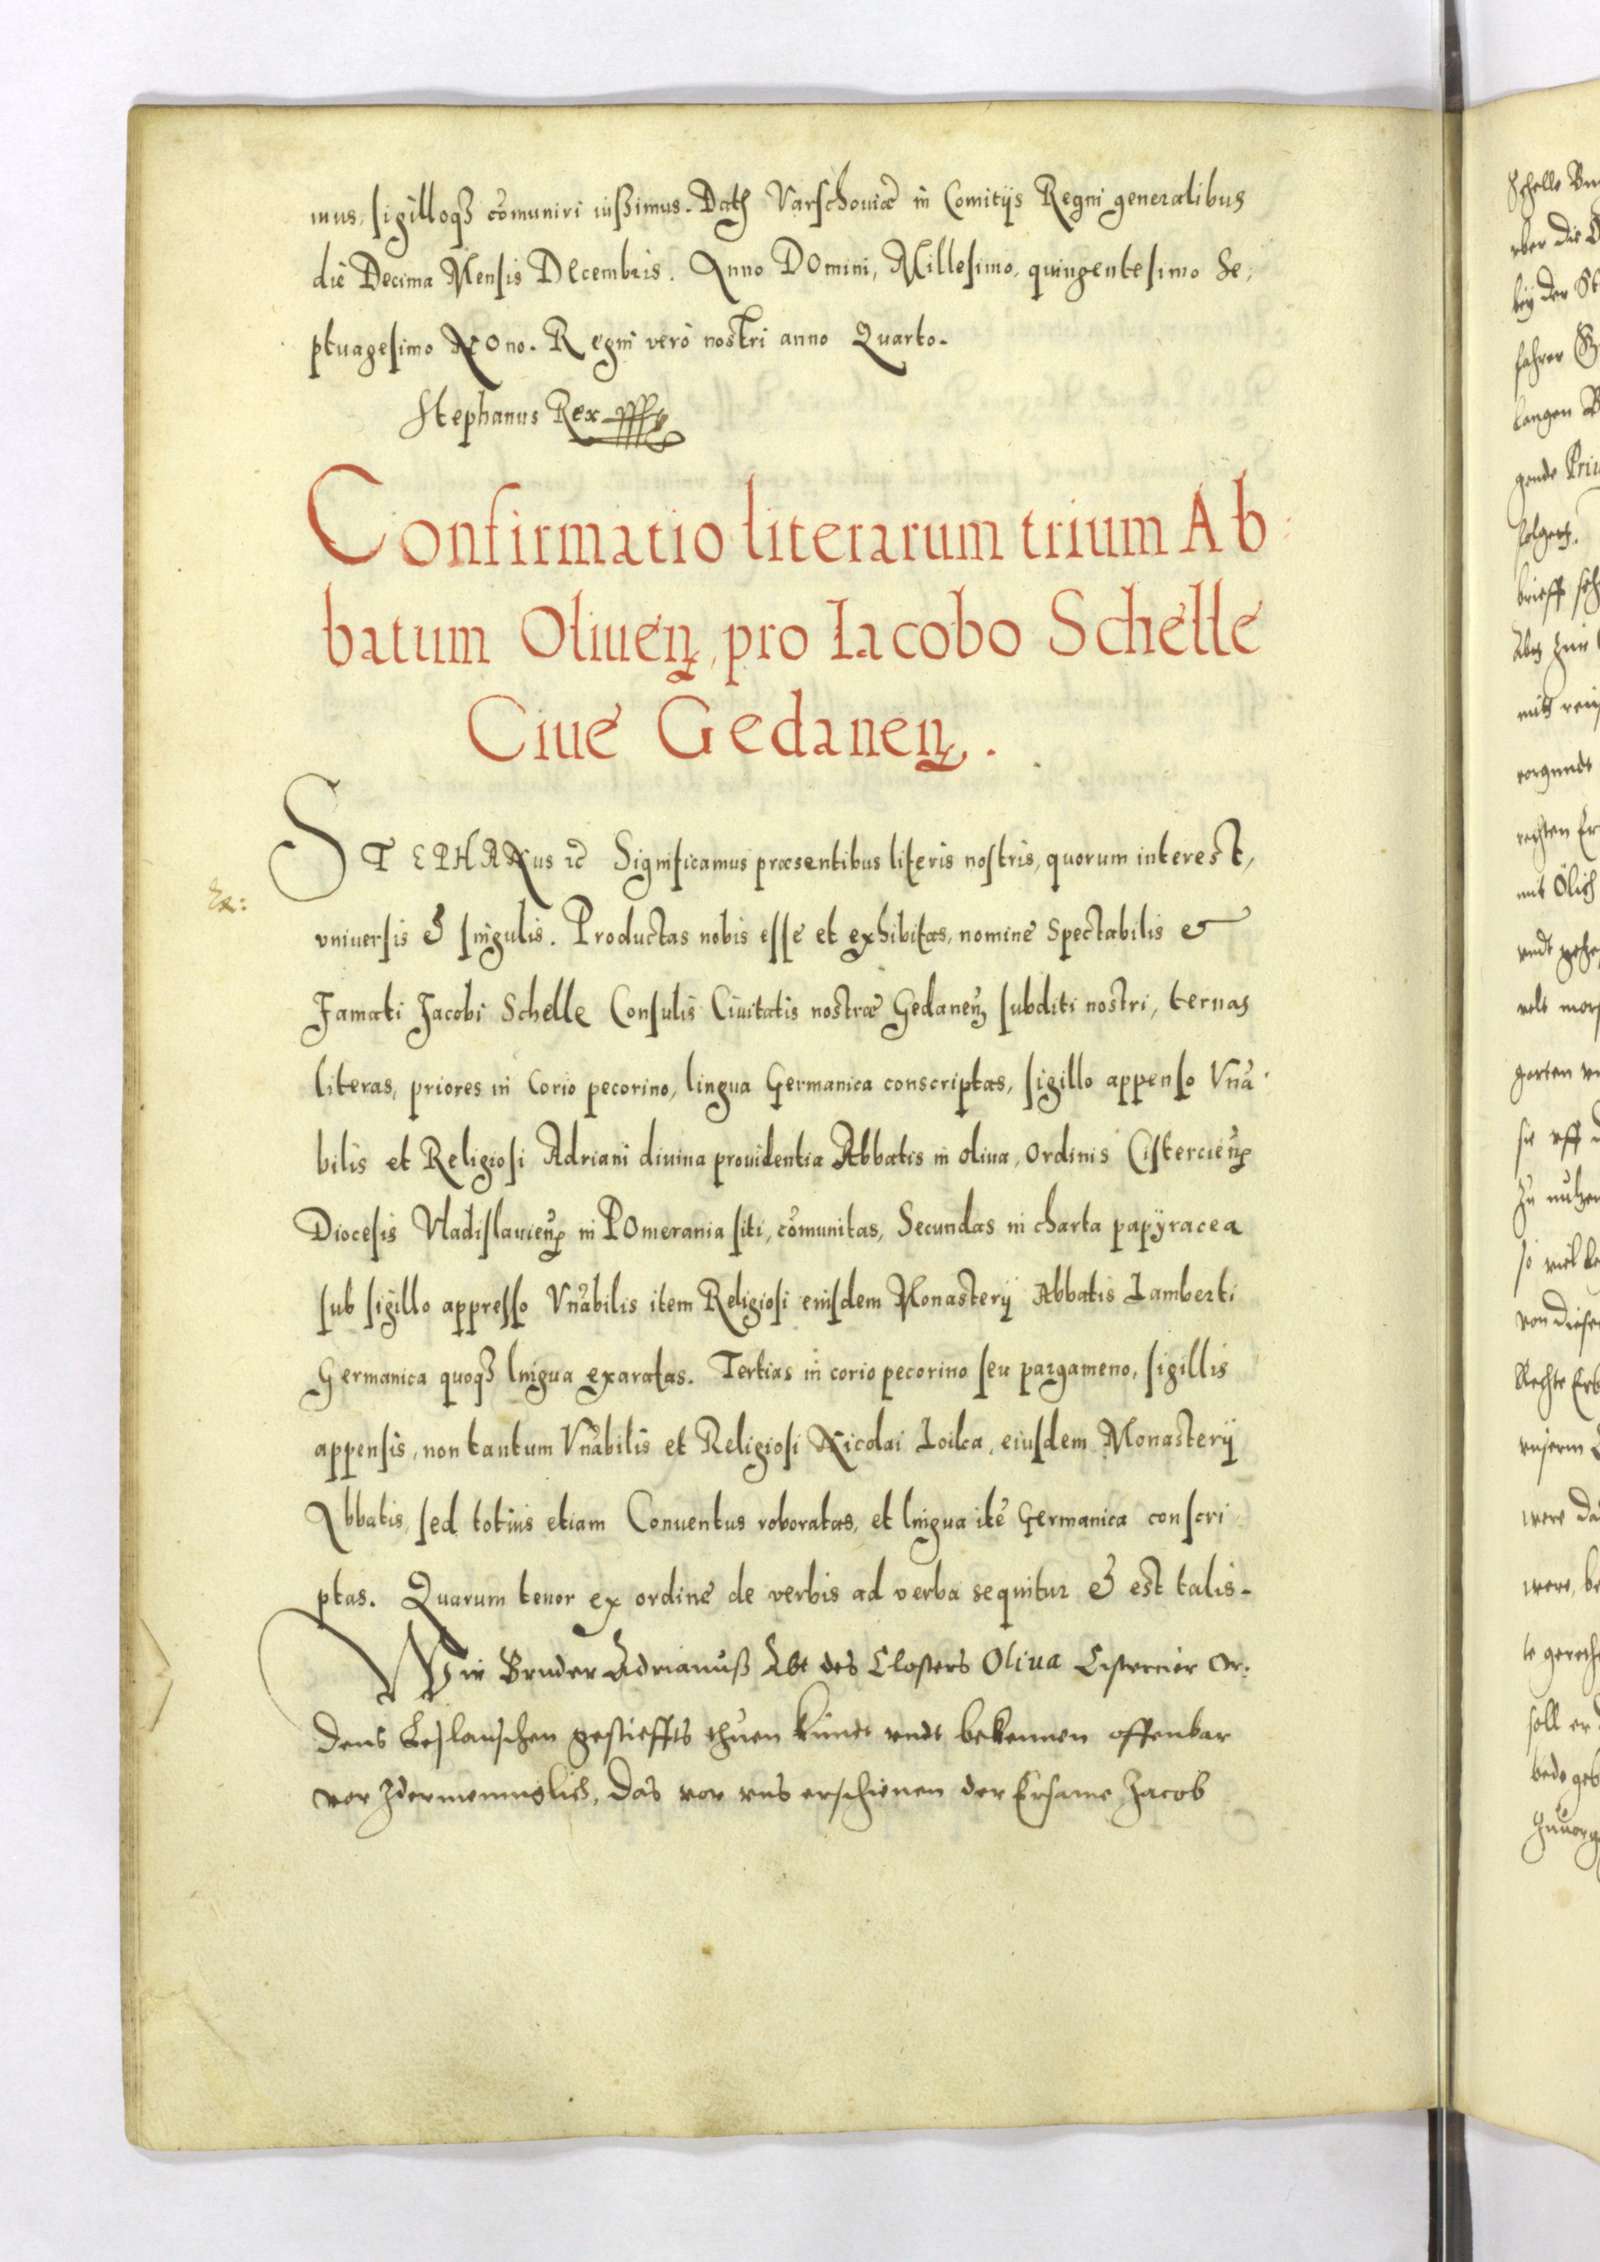 mus, sigilloqꝫ cõmuniri iußimus. Datꝭ Varschouiæ in Comitijs Regni generalibus
die Decima Mensis Decembris. Anno Domini, Millesimo, quingentesimo Se,
ptuagesimo Nono. Regni verò nostri anno Quarto.
Stephanus Rex
Confirmatio literarum trium Ab
batum Oliueñ, pro Iacobo Schelle
Ciue Gedaneñ.
STEPHANus ꝛc Significamus præsentibus literis nostris, quorum interest,
vniuersis & singulis. Productas nobis esse et exhibitas, nomine Spectabilis &
Famati Jacobi Schelle Consulis Ciuitatis nostræ Gedaneñ subditi nostri, ternas
literas, priores in Corio pecorino, lingua Germanica conscriptas, sigillo appenso Vñã
bilis et Religiosi Adriani diuina prouidentia Abbatis in oliua, Ordinis Cistercieñ
Diocesis Vladislauieñ in Pomerania siti, cõmunitas, Secundas in charta papÿracea
sub sigillo appresso Vñabilis item Religiosi eiusdem Monasterij Abbatis Lamberti
Germanica quoqꝫ lingua exaratas. Tertias in corio pecorino seu pargameno, sigillis
appensis, non tantum Vñabilis et Religiosi Nicolai Loĩka, eiusdem Monasterij
Abbatis, sed totius etiam Conuentus roboratas, et lingua itẽ Germanica conscri
ptas. Quarum tenor ex ordine de verbis ad verba sequitur & est talis.
Wir Bruder Adrianuß Abt des Closters Oliua Cistercier Or,
dens Leslauschen gestieffts thuen kundt vndt bekennen offenbar
vor Idermenniglich, das vor vns erschienen der Ersame Jacob